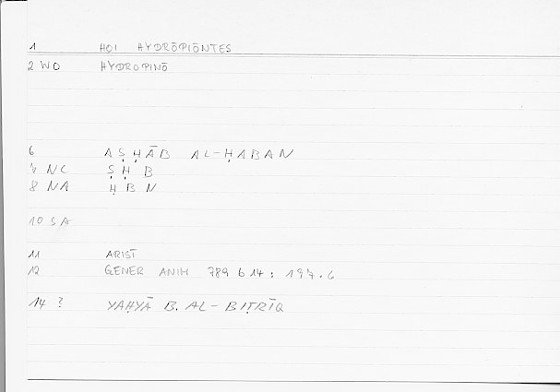 1 HOI HYDRŌPIŌNTES
2 WO HYDROPINŌ
6 AṢḤĀB AL-ḤABAN
7 NC ṢḤB
8 NA ḤBN
10 SA
11 ARIST
12 GENER ANIM 789 b 14 : 197.6
14 ? YAḤYĀ B. AL-BIṬRĪQ